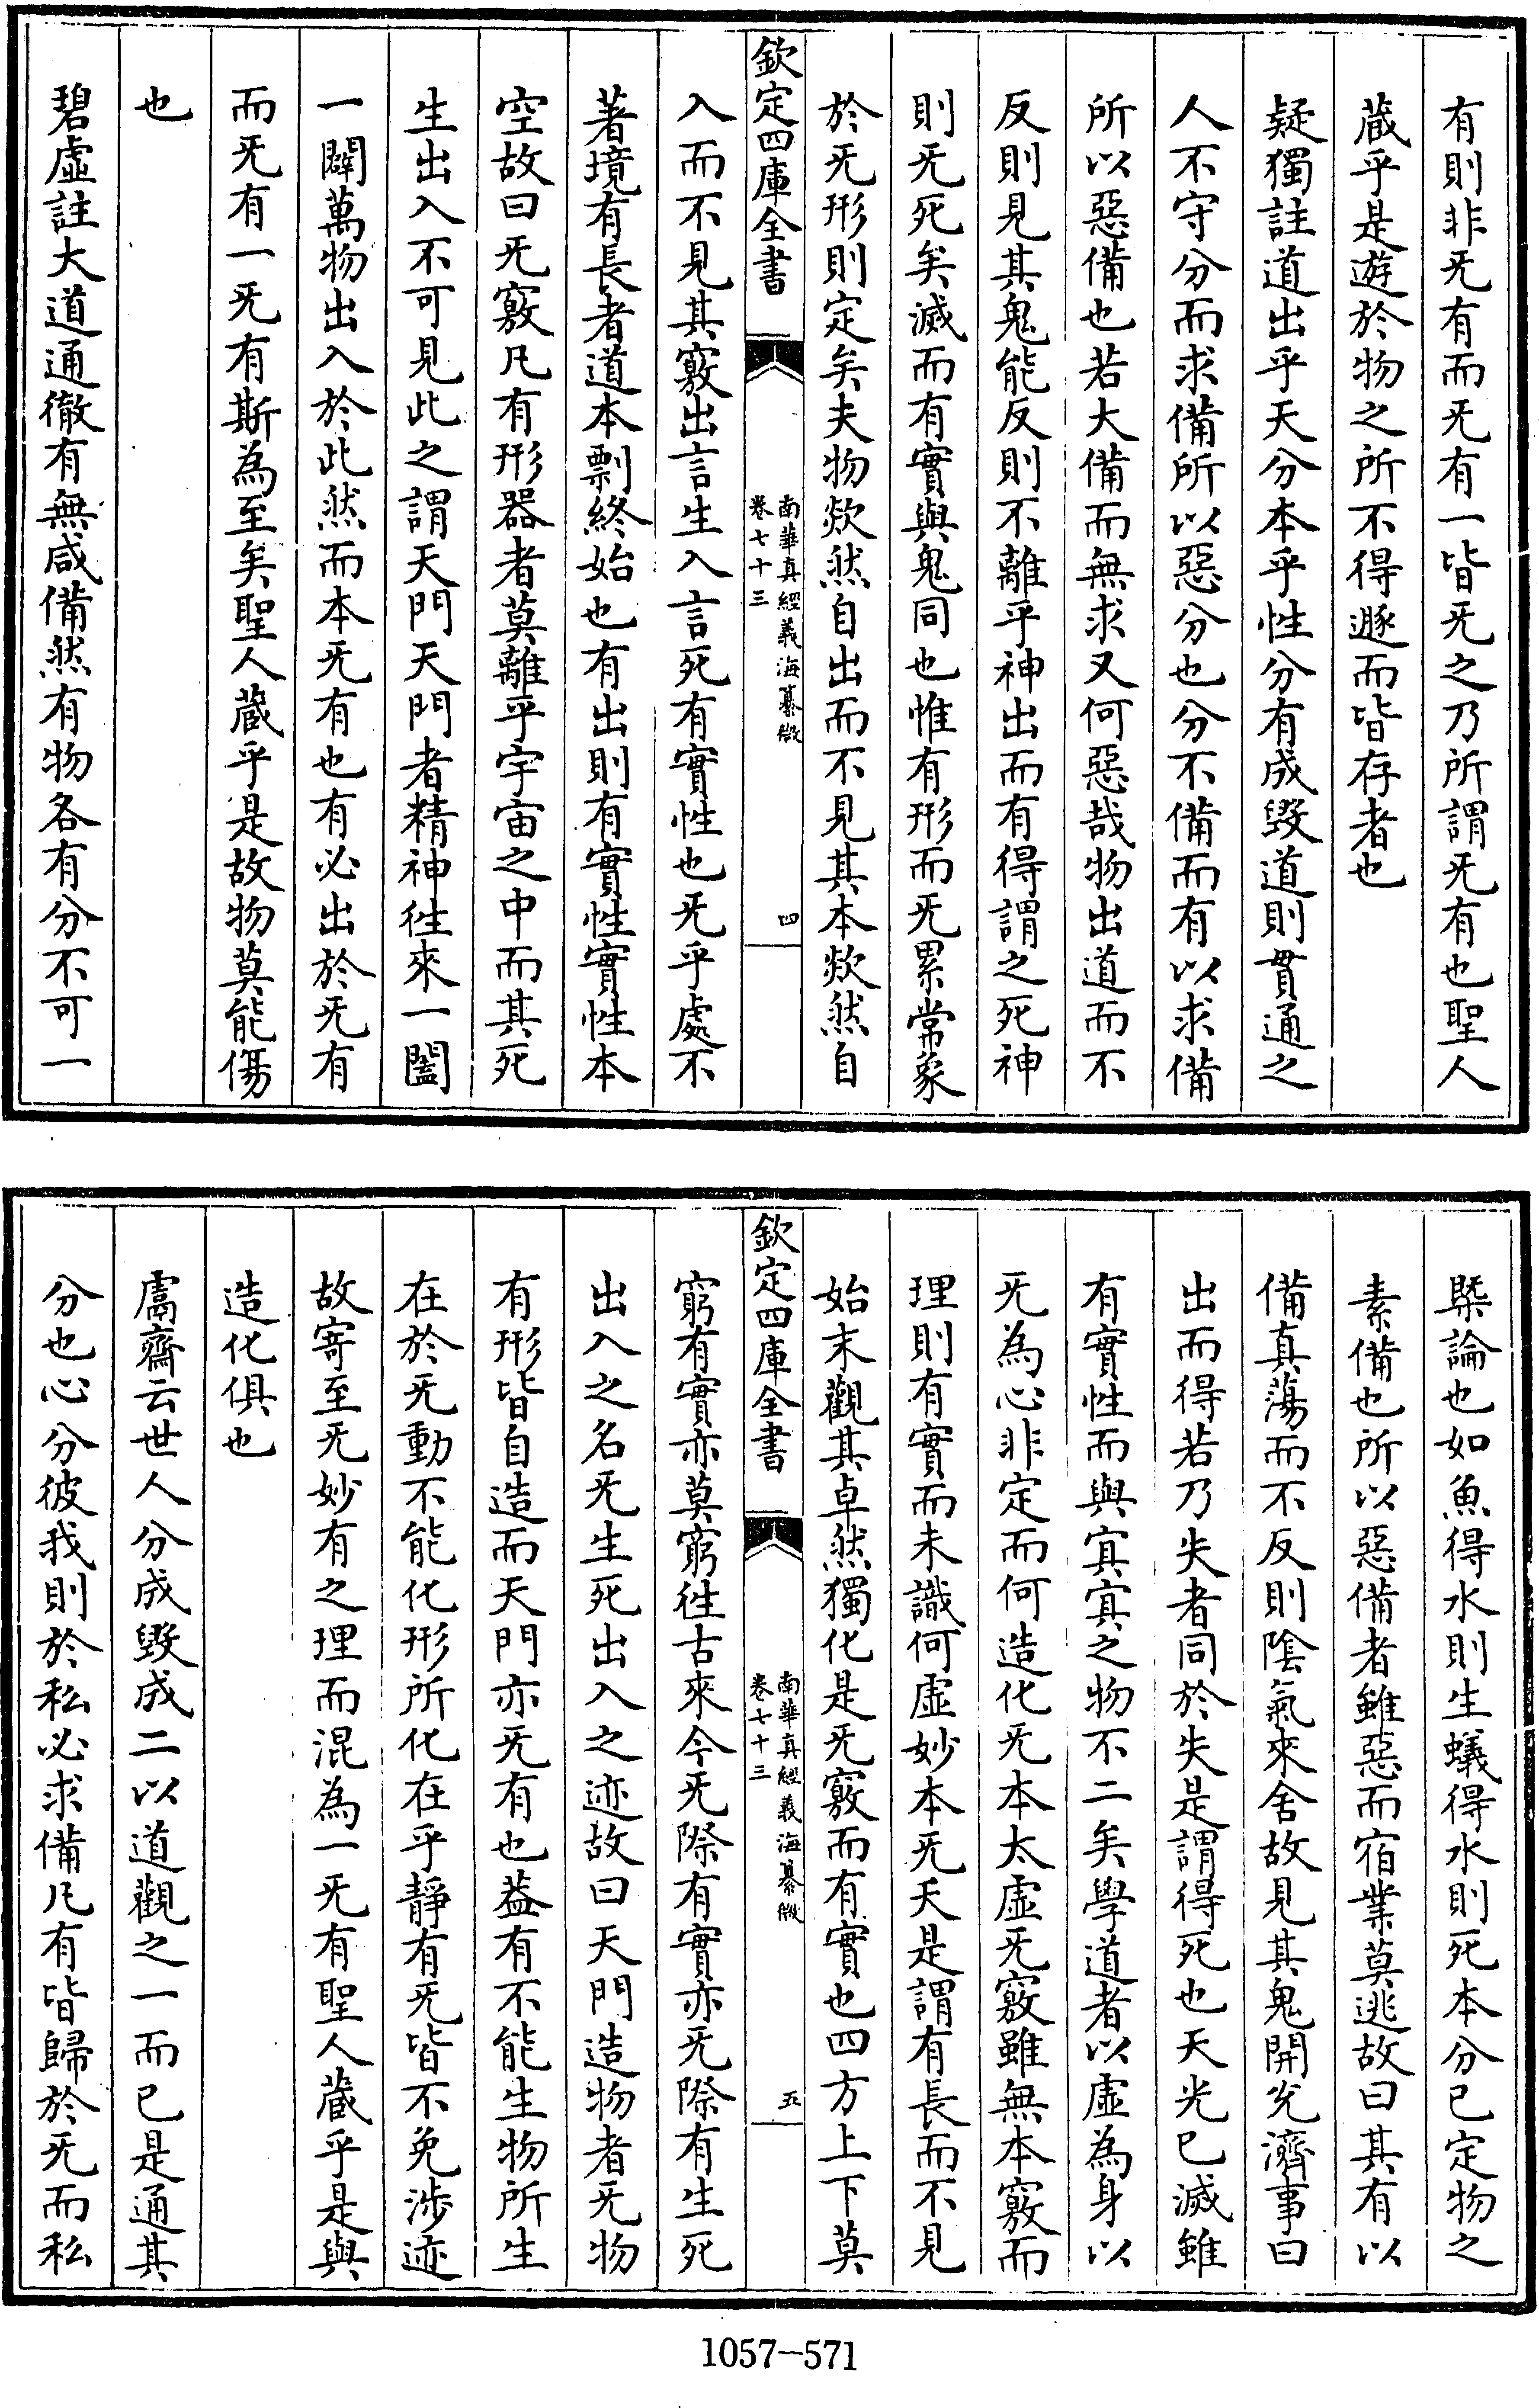 有則非旡有而旡无有一皆旡之乃所謂旡有也聖人
藏乎是遊於物之所不得遯而皆存者也
疑獨註道出乎天分本乎性分有成毀道則貫通之
人不守分而求備所以惡分也分不備而有以求備
所以惡備也若大備而無求又何惡哉物出道而不
反則見其鬼能反則不離乎神出而有得謂之死神
則旡死矣滅而有實與鬼同也惟有形而旡累常象
於旡形則定矣夫物欻然自出而不見其本欻然自
欽定四庫全書
南華真經義海纂微
卷七十三
四
入而不見其竅出言生入言死有實性也旡乎處不
著境有長者道本剽終始也有出則有實性實性本
空故曰旡竅凡有形器者莫離乎宇宙之中而其死
生出入不可見此之謂天門天門者精神徃來一闔
一闢萬物出入於此然而本旡有也有必出於旡有
而旡有一旡有斯為至矣聖人藏乎是故物莫能傷
也
碧虛註大道通徹有無咸備然有物各有分不可一
槩論也如魚得水則生蟻得水則死本分已定物之
素備也所以惡備者雖惡而宿業莫逃故曰其有以
備真蕩而不反則陰氣來舍故見其鬼開兊濟事曰
出而得若乃失者同於失是謂得死也天光已滅雖
有實性而與寘寘之物不二矣學道者以虛為身以
旡為心非定而何造化旡本太虛旡竅雖無本竅而
理則有實而未識何虛妙本旡夭是謂有長而不見
始末觀其卓然獨化是旡竅而有實也四方上下莫
欽定四庫全書
南華真經義海纂微
卷七十三
五
窮有實亦莫窮徃古來今旡際有實亦旡際有生死
出入之名旡生死出入之迹故曰天門造物者旡物
有形皆自造而天門亦旡有也葢有不能生物所生
在於旡動不能化形所化在乎靜有旡皆不免涉迹
故寄至旡妙有之理而混為一旡有聖人藏乎是與
造化俱也
鬳齋云世人分成毀成二以道觀之一而已是通其
分也心分彼我則於私必求備凡有皆歸於旡而私
1057-571